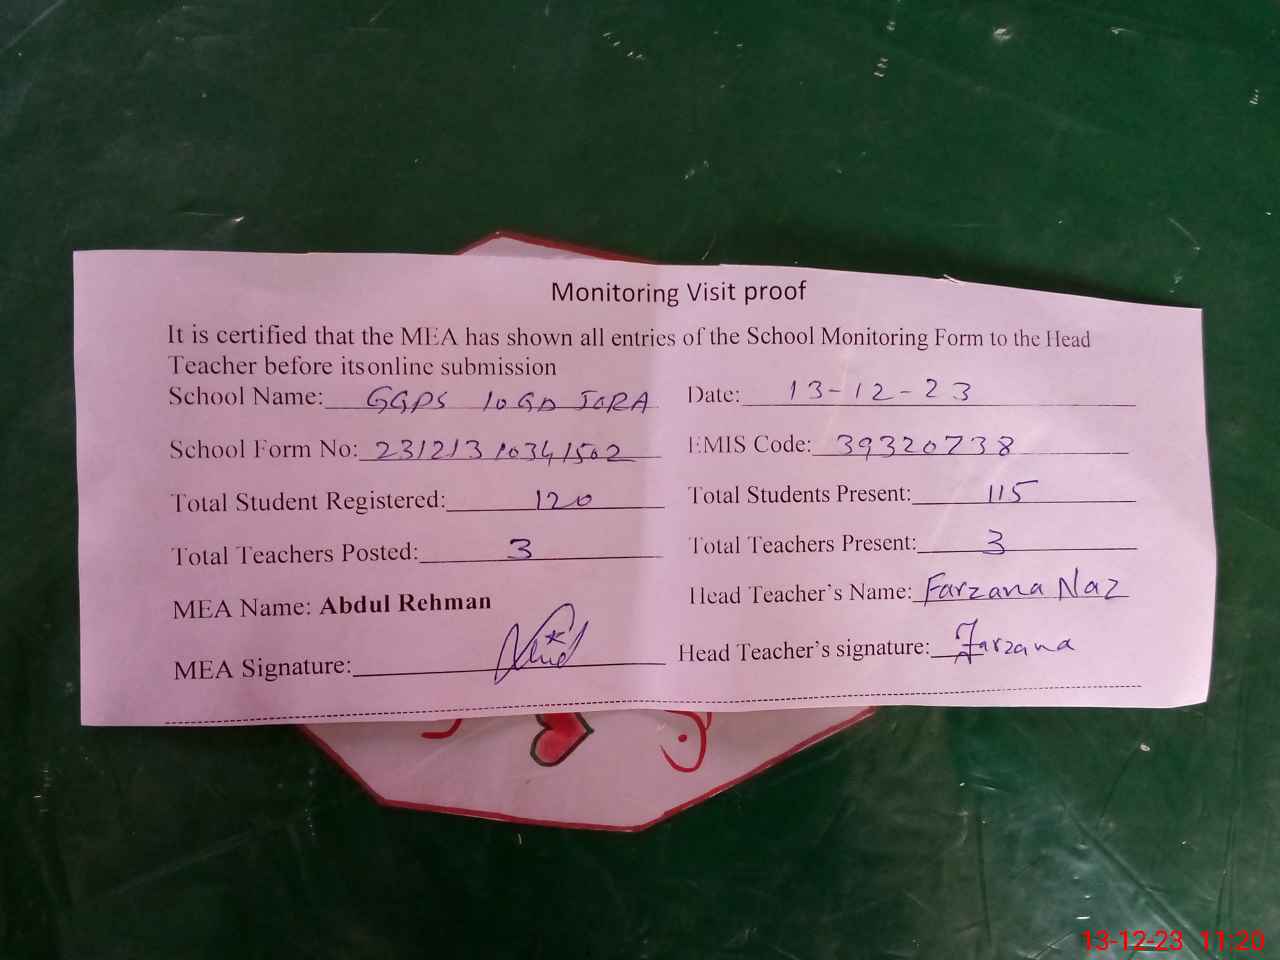 Monitoring Visit proof
It is certified that the MEA has shown all entries of the School Monitoring Form to the Head
Teacher before itsonline submission
School Name: GGPS 10 GD JORA Date: 13-12-23
School Form No: 23121310341502 EMIS Code: 39320738
Total Student Registered: 120 Total Students Present: 115
Total Teachers Posted: 3 Total Teachers Present: 3
MEA Name: Abdul Rehman Head Teacher's Name: Farzana Naz
MEA Signature: Head Teacher's signature: Farzana
13-12-23 11:20